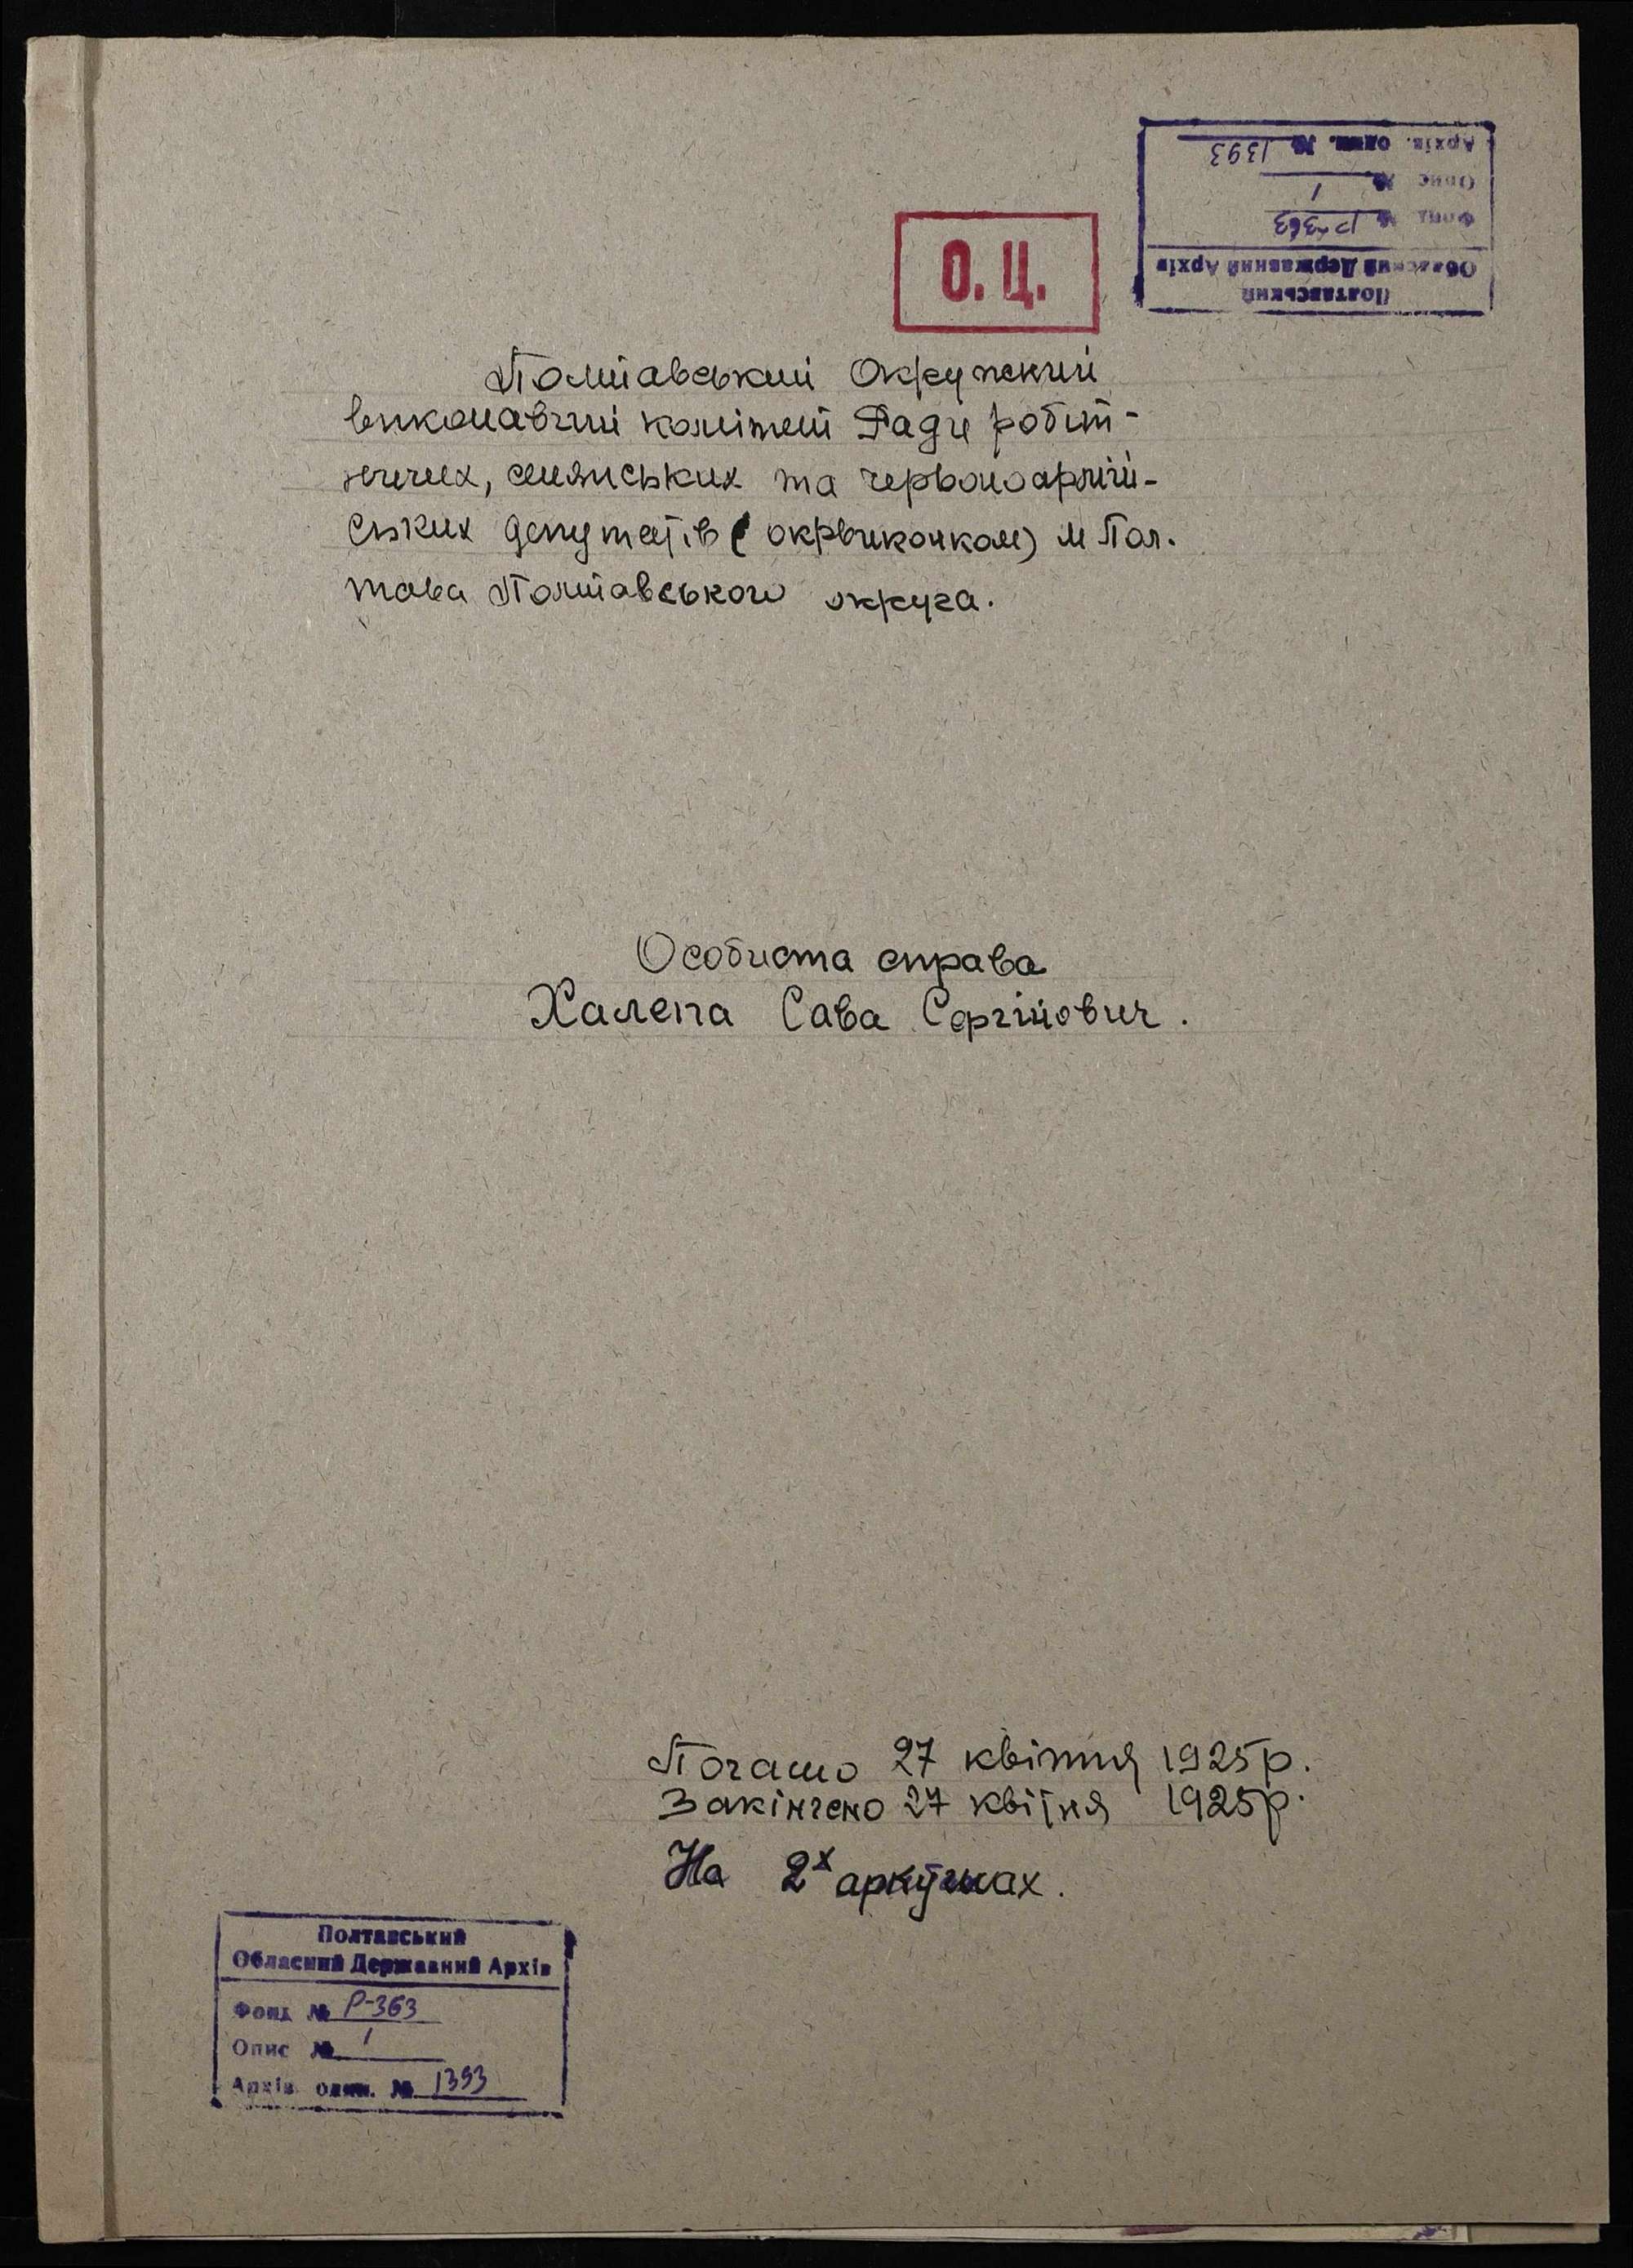 Полтавський
Обласний Державний Архів
Фонд № Р-363
Опис № 1
Архів. один. № 1393
О. Ц.
Полтавський Окружний
виконавчий комітет Ради робіт-
ничих, селянських та червоноармій-
ських депутатів (окрвиконком) м Пол.
тава Полтавського округа.
Особиста справа
Халепа Сава Сергійович.
Почато 27 квітня 1925р.
Закінчено 27 квітня 1925р.
На 2х аркушах.
Полтавський
Обласний Державний Архів
Фонд № Р-363
Опис № 1
Архів. один. № 1393